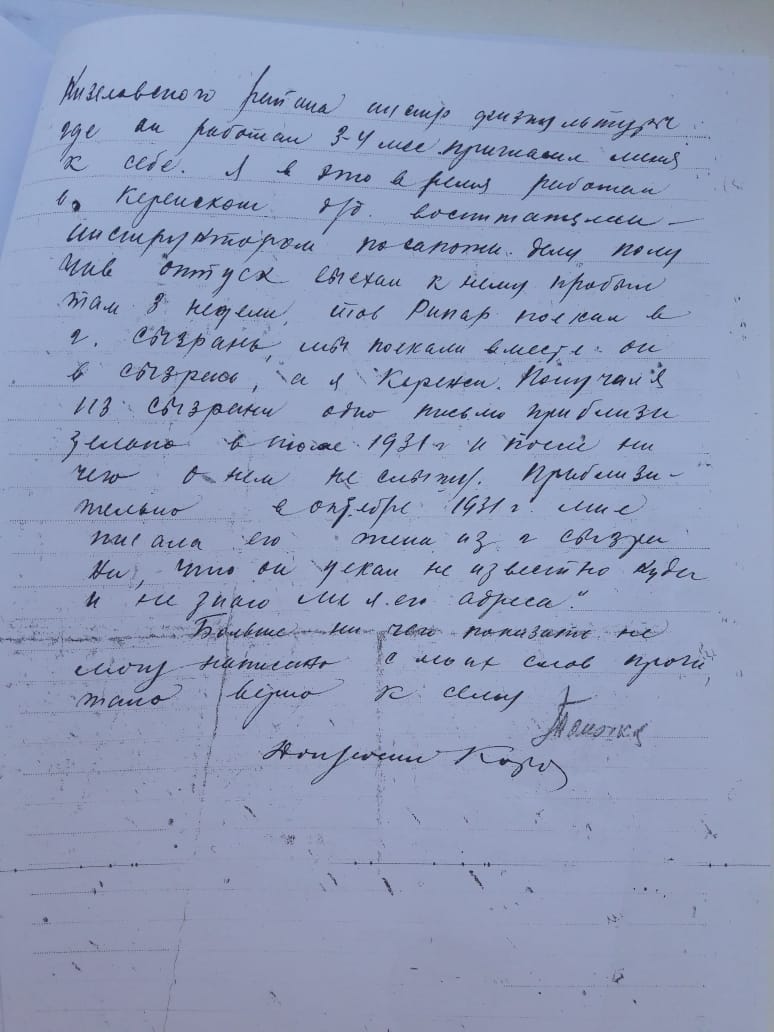 Кизеловского района инстр физкультуры
где он работал 3-4 мес. пригласил меня
к себе. Я в это время работал
в Керенском д/д. воспитателем-
инструктором по сапожн. делу полу
чив отпуск съехал к нему пробыл
там 3 недели, тов Рипар поехал в
г. Сызрань, мы поехали вместе: он
в Сызрань, а я Керенск. Получал я
из Сызрани одно письмо приблизи
тельно в 1931 г и после ни
чего о нем не слышу. Приблизи-
тельно в октябре 1931 г. мне
писала его жена из г Сызра
ни, что он уехал не известно куда
и не знаю ли я его адреса."
Больше ни чего показать не
могу написано с моих слов прочи
тано верно к сему
Допросил